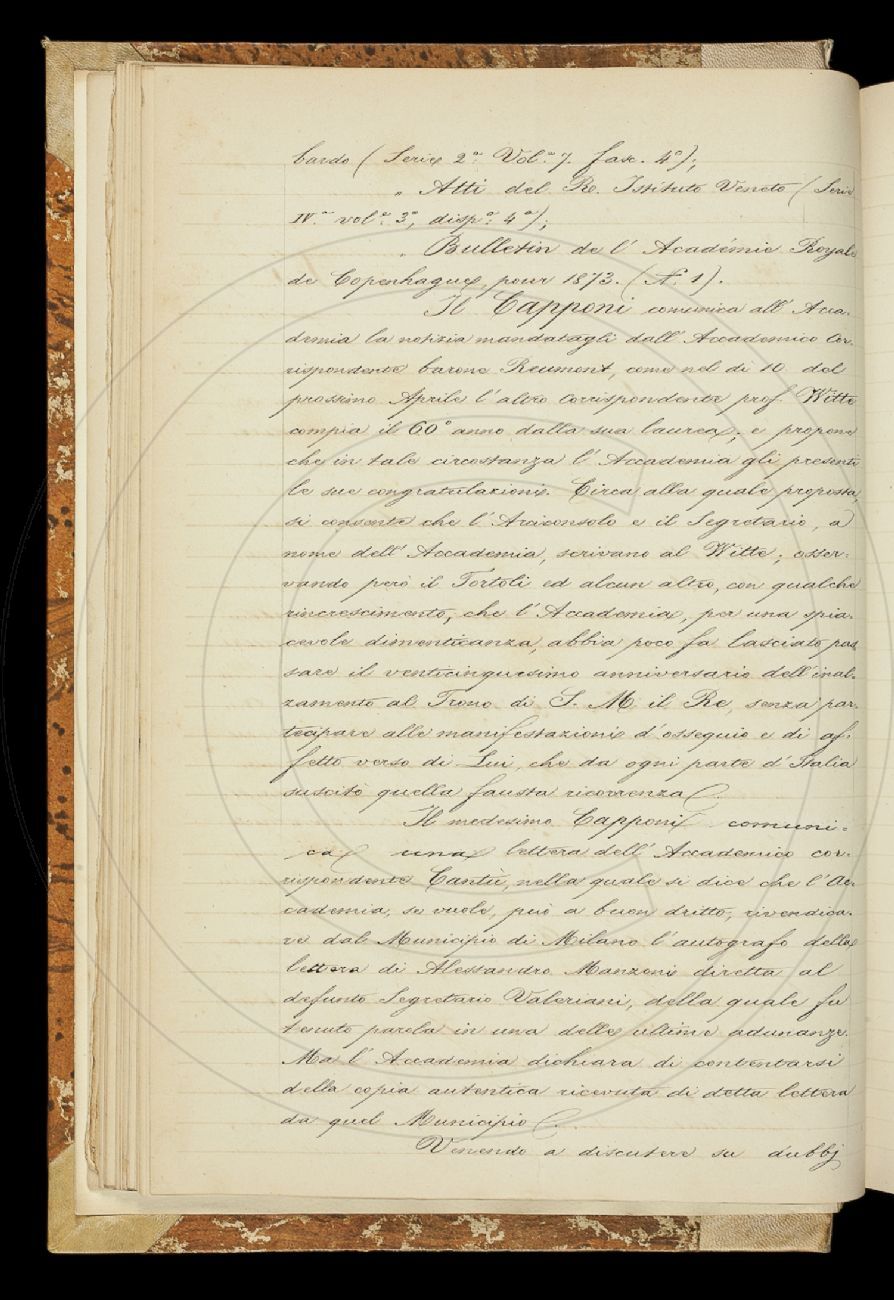 bardo (Serie 2.ª Vol.º 7. fasc. 4º);
" Atti del R. Istituto Veneto (Serie
IV.ª vol.º 3º, disp.ª 4ª);
" Bulletin de l' Académie Royale
de Copenhague, pour 1873. (N. 1).
Il Capponi comunica all' Acca-
demia la notizia mandatagli dall' Accademico Cor-
rispondente barone Reumont, come nel dì 10 del
prossimo Aprile l' altro Corrispondente prof. Witte
compia il 60º anno dalla sua laurea; e propone
che in tale circostanza l' Accademia gli presenti
le sue congratulazioni. Circa alla quale proposta,
si consente che l' Arciconsolo e il Segretario, a
nome dell' Accademia, scrivano al Witte; osser-
vando però il Tortoli ed alcun altro, con qualche
rincrescimento, che l' Accademia, per una spia-
cevole dimenticanza, abbia poco fa lasciato pas
sare il venticinquesimo anniversario dell' inal-
zamento al Trono di S. M. il Re, senza par-
tecipare alle manifestazioni d' ossequio e di af-
fetto verso di Lui, che da ogni parte d' Italia
suscitò quella fausta ricorrenza.
Il medesimo Capponi comuni-
ca una lettera dell' Accademico cor-
rispondente Cantù, nella quale si dice che l' Ac-
cademia, se vuole, può a buon dritto, rivendica-
re dal Municipio di Milano l' autografo della
lettera di Alessandro Manzoni diretta al
defunto Segretario Valeriani, della quale fu
tenuto parola in una delle ultime adunanze.
Ma l' Accademia dichiara di contentarsi
della copia autentica ricevuta di detta lettera
da quel Municipio.
Venendo a discutere su dubbj